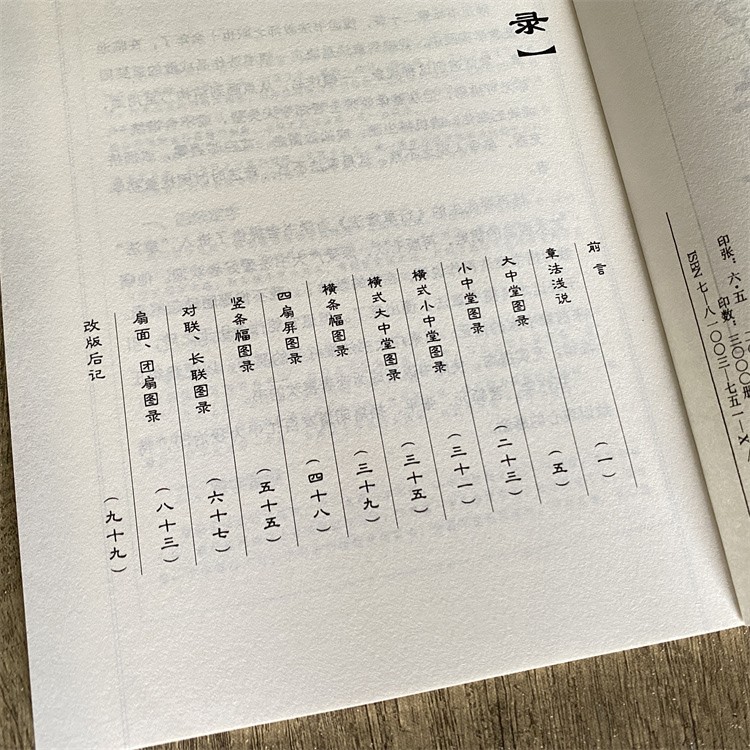 印张：六·五 印数：三〇〇〇册
ISBN 七-八一〇〇三-七五一-
录】
前言
章法浅说（一）
大中堂图录（五）
小中堂图录（二十三）
横式小中堂图录（三十一）
横式大中堂图录（三十五）
横条幅图录（三十九）
四扇屏图录（四十八）
竖条幅图录（五十五）
对联、长联图录（六十七）
扇面、团扇图录（八十三）
改版后记（九十九）